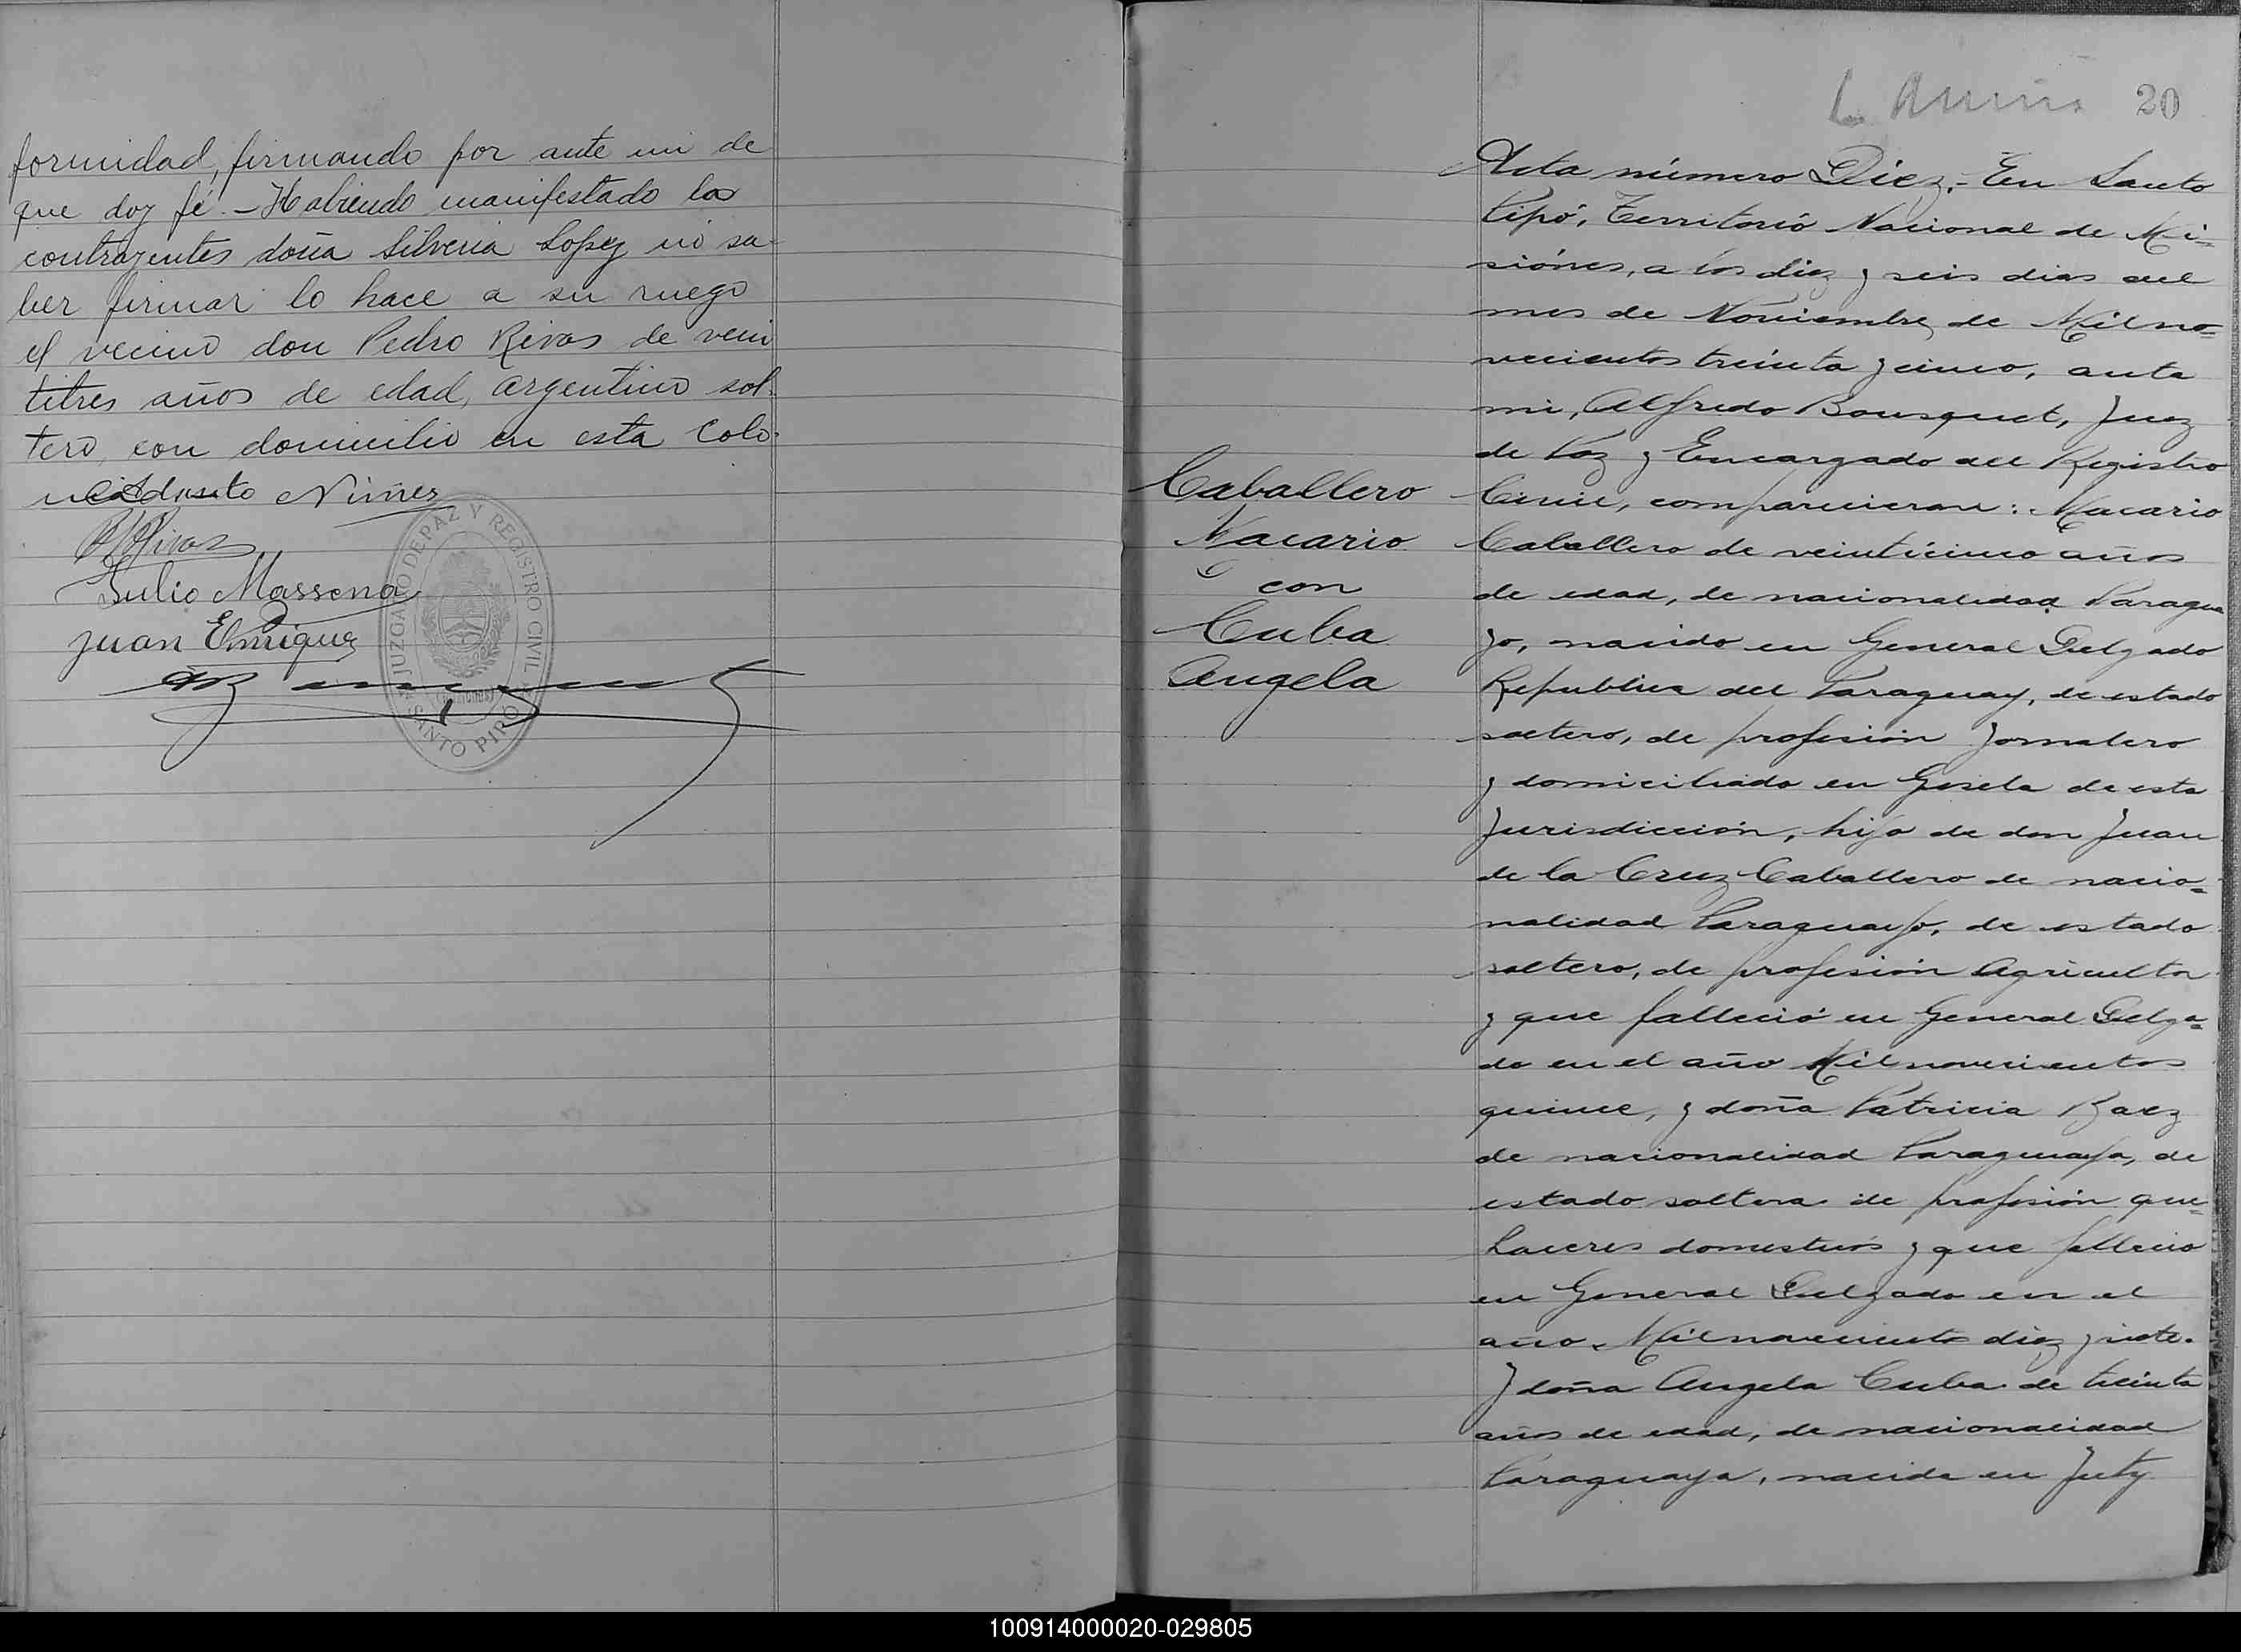 formidad, firmando por ante mi de
que doy fé.- Habiendo manifestado la
contrayentes doña Silveria Lopez no sa-
ber firmar lo hace a su ruego
el vecino don Pedro Rivas de vein
titres años de edad, argentino sol-
tero, con domicilio en esta Colo-
nia
Nuñez
Rivas
Julio Massena
Juan Enrique
JUZGADO DE PAZ Y REGISTRO CIVIL
SANTO PIPO
20
Acta número Diez.- En Santo
Pipó, Territorio Nacional de Mi=
siónes, a los diez y seis dias del
mes de Noviembre de Mil no=
vecientos treinta y cinco, ante
mi, Alfredo Bousquet, Juez
de Paz y Encargado del Registro
Civil, comparecieron: Macario
Caballero de veinticinco años
de edad, de nacionalidad Paragua
yo, nacido en General Delgado
Republica del Paraguay, de estado
soltero, de profesión Jornalero
y domiciliado en Gisela de esta
Jurisdicción, hijo de don Juan
de la Cruz Caballero de nacio=
nalidad Paraguayo, de estado
soltero, de profesión Agricultor
y que falleció en General Delga=
do en el año Mil novecientos
quince, y doña Patricia Baez
de nacionalidad Paraguaya, de
estado soltera de profesión que=
haceres domesticos y que fallecio
en General Delgado en el
año Mil novecientos diez y siete.
Y doña Angela Cuba de treinta
años de edad, de nacionalidad
Paraguaya, nacida en Juty
Caballero
Macario
con
Cuba
Angela
100914000020-029805